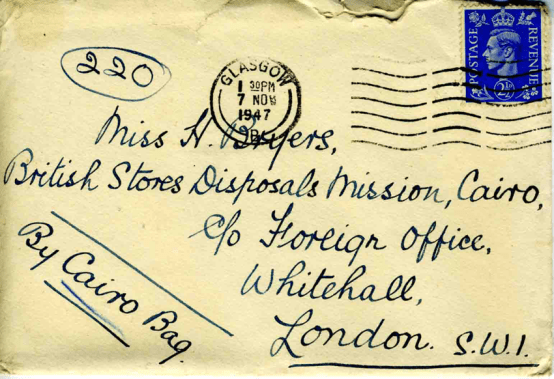 220
GLASGOW
1 30PM
7 NOV
1947
POSTAGE
REVENUE
2½D
Miss H. Byers,
British Stores Disposals Mission, Cairo,
c/o Foreign Office,
Whitehall,
London. S.W.1.
By Cairo Bag.